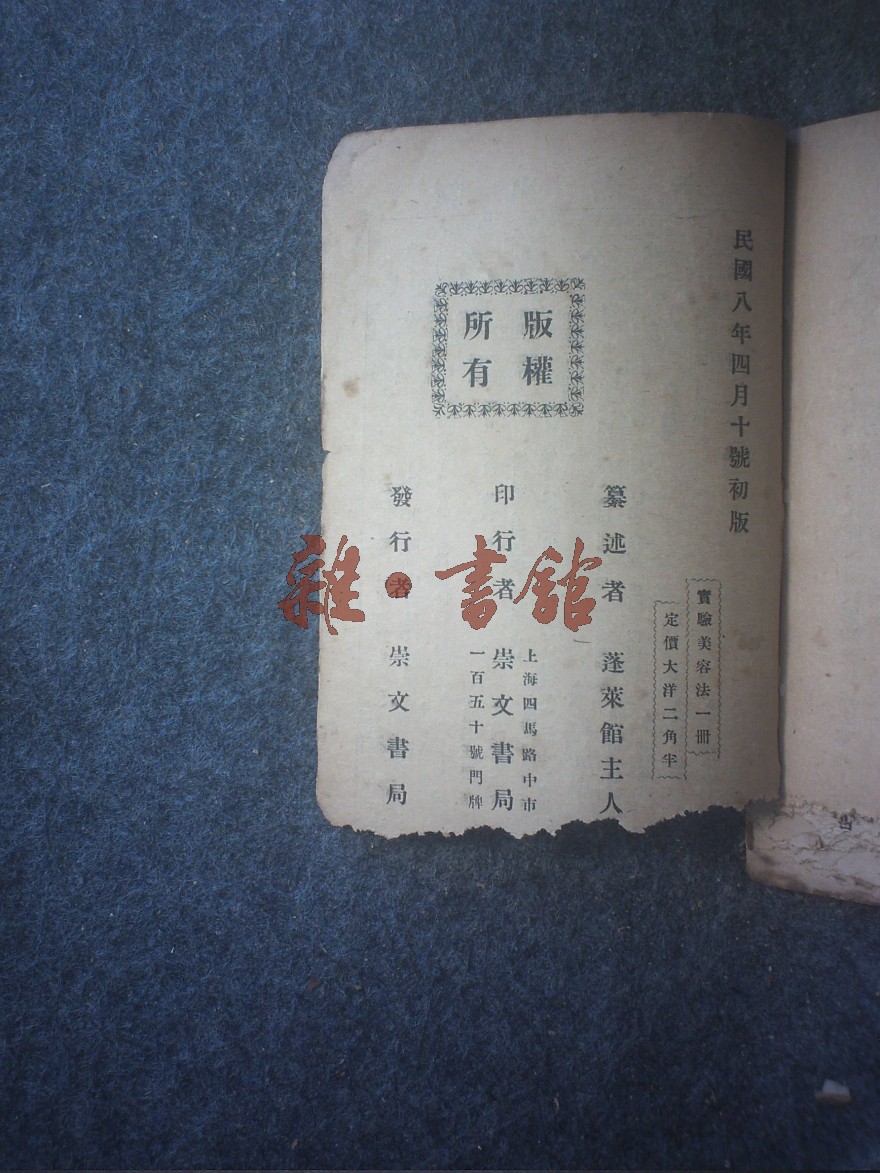 民國八年四月十號初版
實驗美容法一冊
定價大洋二角半
版權
所有
纂述者 蓬萊館主人
印行者 崇文書局
上海四馬路中市
一百五十號門牌
發行者 崇文書局
雜·書館